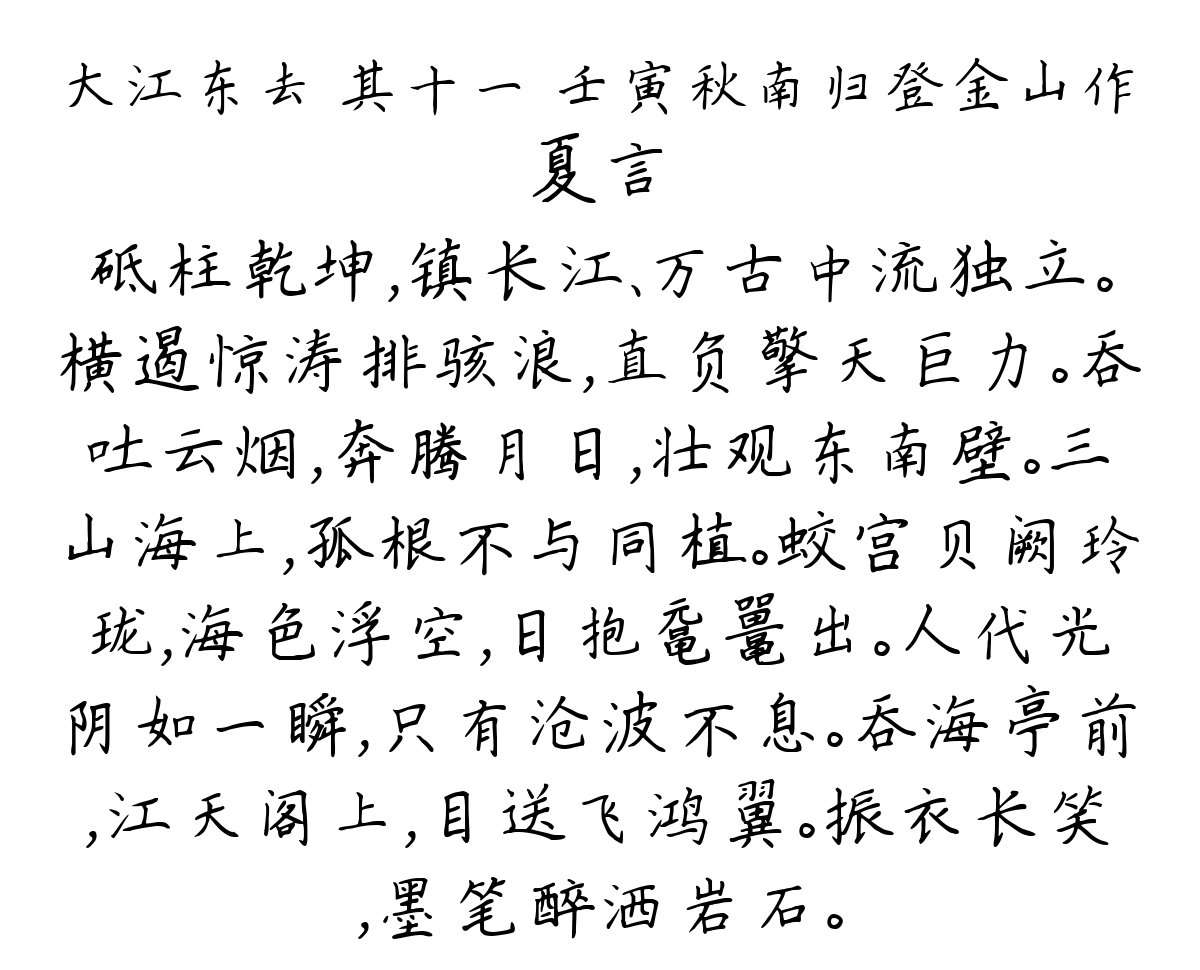 大江东去 其十一 壬寅秋南归登金山作
夏言
砥柱乾坤,镇长江、万古中流独立。
横遏惊涛排骇浪,直负擎天巨力。吞
吐云烟,奔腾月日,壮观东南壁。三
山海上,孤根不与同植。蛟宫贝阙玲
珑,海色浮空,日抱鼋鼍出。人代光
阴如一瞬,只有沧波不息。吞海亭前
,江天阁上,目送飞鸿翼。振衣长笑
,墨笔醉洒岩石。